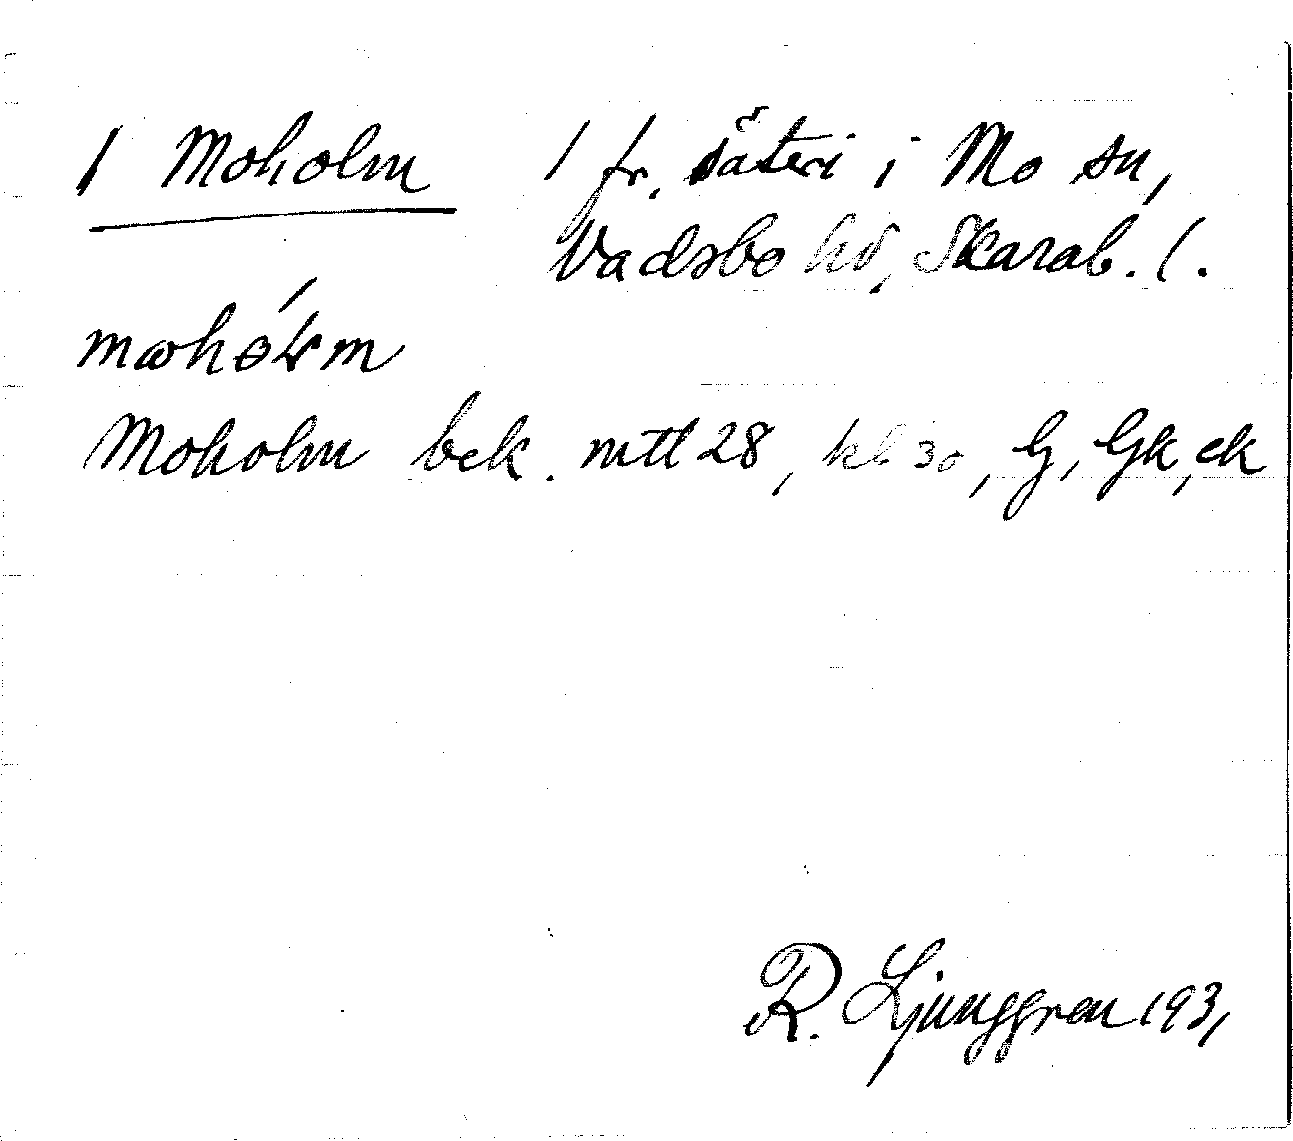 1 Moholm 1 fr. säteri i Mo sn,
Vadsbo hd, Skarab. l.
Moholm bek. mtl 28, kl 30, G, Gk, ek
R. Ljunggren 1931